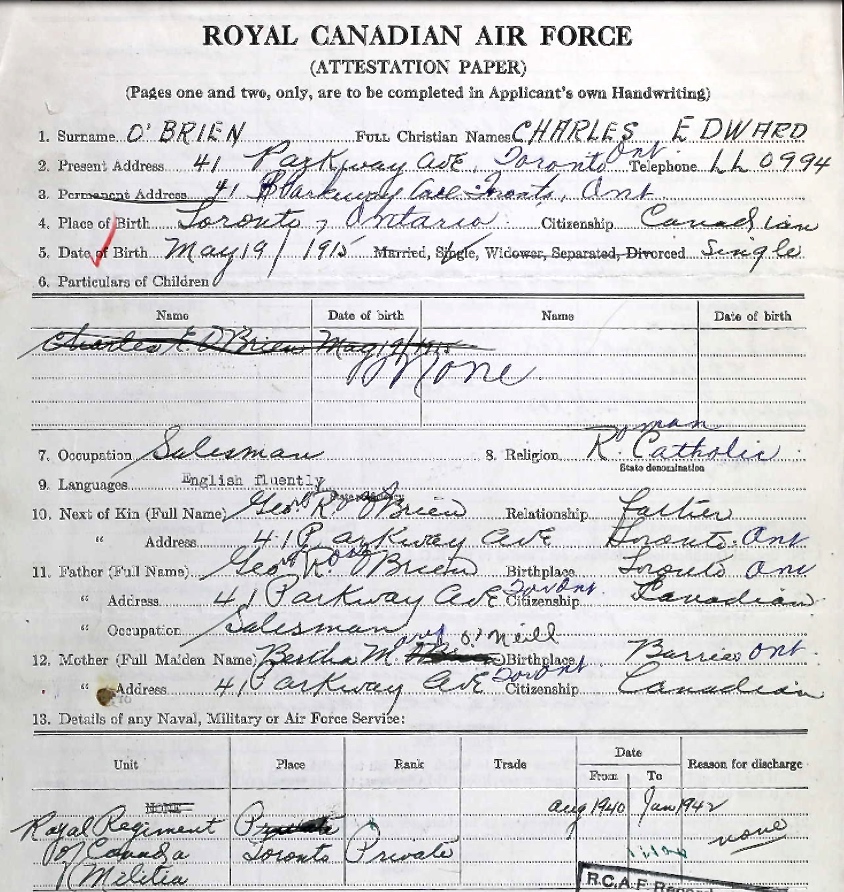 ROYAL CANADIAN AIR FORCE
(ATTESTATION PAPER)
(Pages one and two, only, are to be completed in Applicant's own Handwriting)
1. Surname O'BRIEN FULL Christian Names CHARLES EDWARD
2. Present Address 41 Parkway Ave, Toronto Ont Telephone LL 0994
3. Permanent Address 41 Parkway Ave Toronto, Ont
4. Place of Birth Toronto, Ontario Citizenship Canadian
5. Date of Birth May 19/1915 Married, Single, Widower, Separated, Divorced Single
6. Particulars of Children
Name Date of birth Name Date of birth
Charles E. O'Brien May 19/1915
None
7. Occupation Salesman 8. Religion Roman Catholic
State denomination
9. Languages English fluently
10. Next of Kin (Full Name) Geo. R. O'Brien Relationship Father
" Address 41 Parkway Ave Toronto. Ont
11. Father (Full Name) Geo R. O'Brien Birthplace Toronto Ont
" Address 41 Parkway Ave Tor Ont. Citizenship Canadian
" Occupation Salesman
12. Mother (Full Maiden Name) Bertha Mary O'Neill Birthplace Barrie Ont.
" Address 41 Parkway Ave Tor Ont Citizenship Canadian
13. Details of any Naval, Military or Air Force Service:
Unit Place Rank Trade Date From To Reason for discharge
NONE Aug 1940 Jan 1942
Royal Regiment Private none
of Canada Toronto Private
Militia
R.C.A.F. Record